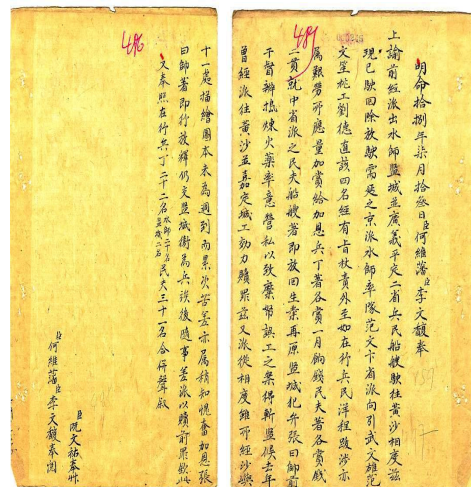 明命拾捌年柒月拾叁日臣何維藩臣李文馥奉
上諭前經派出水師監城並廣義平定二省兵民船艘駛往黃沙相度茲
現已駛回除放駛需延之京派水師率隊范文卞省派向引武文雄范
文笙桃工劉德直該四名經有旨杖責外至如在行兵民洋程跋涉亦
屬艱勞所應量加賞給加恩兵丁著各賞一月餉錢民夫著各賞錢
二貫就中省派之民夫船艘著即放回生業再原監城犯弁張曰帥前
干督辦搗煉火藥率意營私以致糜帑誤工之案得斬監候去年
曾經派往黃沙並嘉定城工効力贖罪茲又派從相度雖所經沙嶼
十一處描繪圖本未為週到而累次苦差亦屬稍知愧奮加恩張
曰帥著即行放釋仍交監城衙為兵俟後隨事差派以贖前罪欽此
又奉照在行兵丁二十二名水師二十名監城二名民夫三十一名合併聲敘
臣阮文祐奉艸
臣何維藩臣李文馥奉閱
486